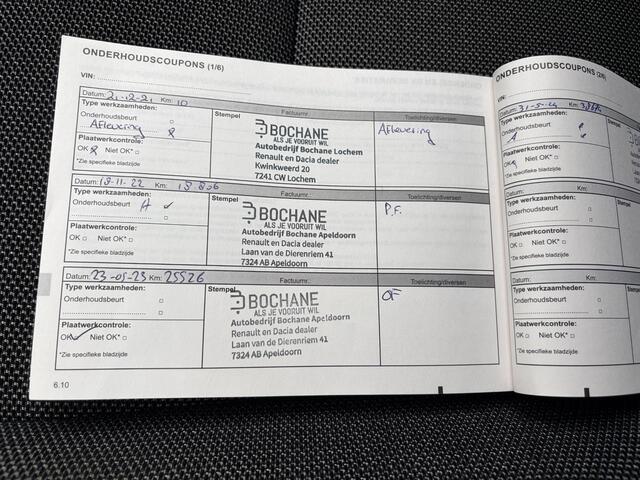 ONDERHOUDSCOUPONS (1/6)
VIN:
Datum: 21-12-21 Km: 10
Type werkzaamheden:
Onderhoudsbeurt
Aflevering
Plaatwerkcontrole:
OK Niet OK*
*Zie specifieke bladzijde
Stempel
Factuurnr.
BOCHANE
ALS JE VOORUIT WIL
Autobedrijf Bochane Lochem
Renault en Dacia dealer
Kwinkweerd 20
7241 CW Lochem
Toelichting/diversen
Aflevering
Datum: 18-11-22 Km: 18 806
Type werkzaamheden:
Onderhoudsbeurt A
Plaatwerkcontrole:
OK Niet OK*
*Zie specifieke bladzijde
Stempel
Factuurnr.
BOCHANE
ALS JE VOORUIT WIL
Autobedrijf Bochane Apeldoorn
Renault en Dacia dealer
Laan van de Dierenriem 41
7324 AB Apeldoorn
Toelichting/diversen
P.F.
Datum: 23-05-23 Km: 25526
Type werkzaamheden:
Onderhoudsbeurt
Plaatwerkcontrole:
OK Niet OK*
*Zie specifieke bladzijde
Stempel
Factuurnr.
BOCHANE
ALS JE VOORUIT WIL
Autobedrijf Bochane Apeldoorn
Renault en Dacia dealer
Laan van de Dierenriem 41
7324 AB Apeldoorn
Toelichting/diversen
OF
6.10
ONDERHOUDSCOUPONS (2/6)
VIN:
Datum: 31-5-24 Km:
Type werkzaamheden:
Onderhoudsbeurt
Plaatwerkcontrole:
OK Niet OK*
*Zie specifieke bladzijde
Datum: Km:
Type werkzaamheden:
Onderhoudsbeurt
Plaatwerkcontrole:
OK Niet OK*
*Zie specifieke bladzijde
Datum: Km:
Type werkzaamheden:
Onderhoudsbeurt
Plaatwerkcontrole:
OK Niet OK*
*Zie specifieke bladzijde